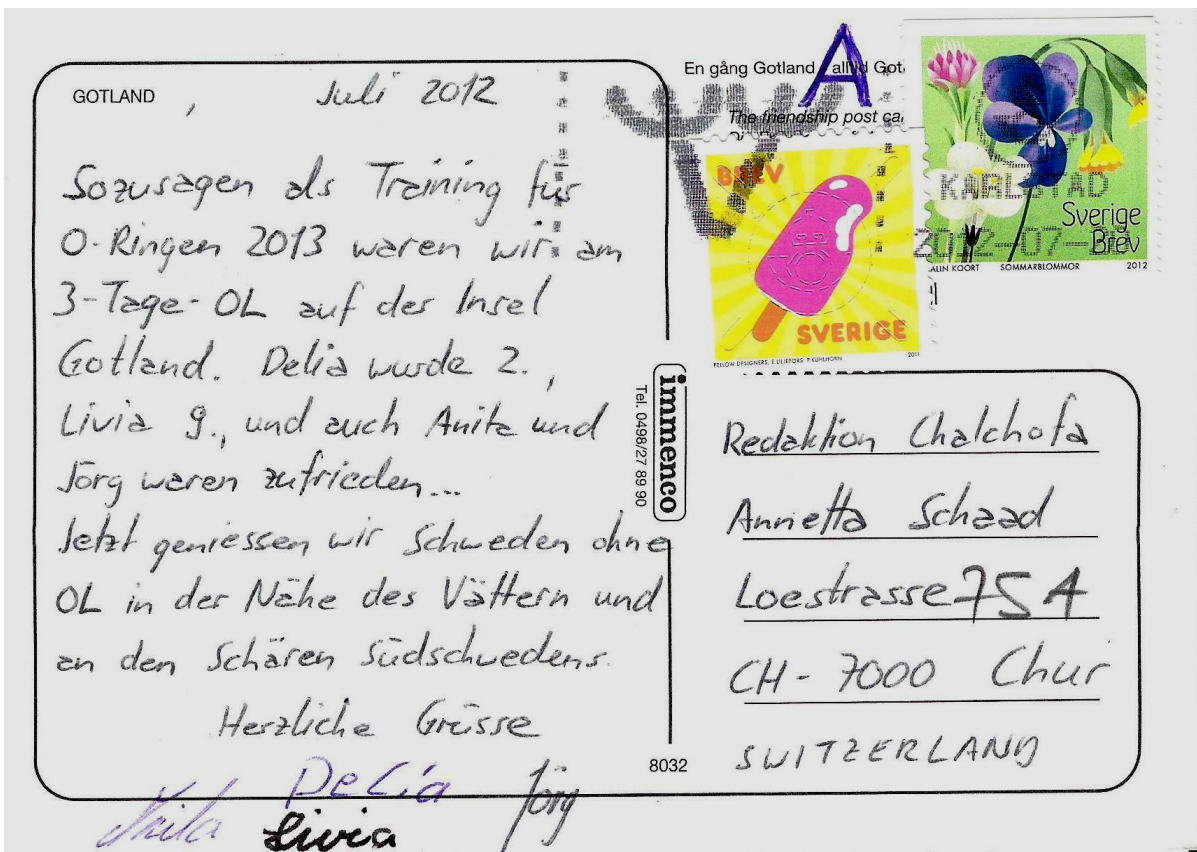 GOTLAND, Juli 2012
Sozusagen als Training für
O-Ringen 2013 waren wir am
3-Tage-OL auf der Insel
Gotland. Delia wurde 2.,
Livia 9., und auch Anita und
Jörg waren zufrieden...
Jetzt geniessen wir Schweden ohne
OL in der Nähe des Vättern und
an den Schären Südschwedens.
Herzliche Grüsse
Delia Jörg
Anita Livia
En gång Gotland alltid Got
A
The friendship post ca
BREV
SVERIGE
FELLOW DESIGNERS, E. LILJEFORS P. KUHLHORN 2011
KARLSTAD
2012-07-
Sverige
Brev
MALIN KOORT SOMMARBLOMMOR 2012
immenco
Tel. 0498/27 89 90
8032
Redaktion Chalchofa
Annetta Schaad
Loestrasse 75A
CH-7000 Chur
SWITZERLAND